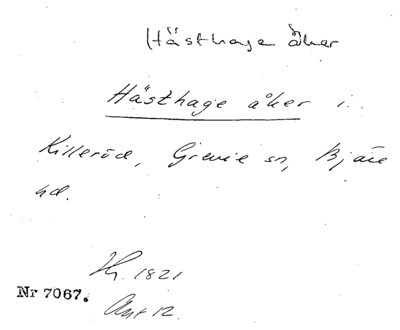 Hästhage åker
Hästhage åker i
Killeröd, Grevie sn, Bjäre
hd.
Nr 7067.
Hy. 1821
Akt 12.